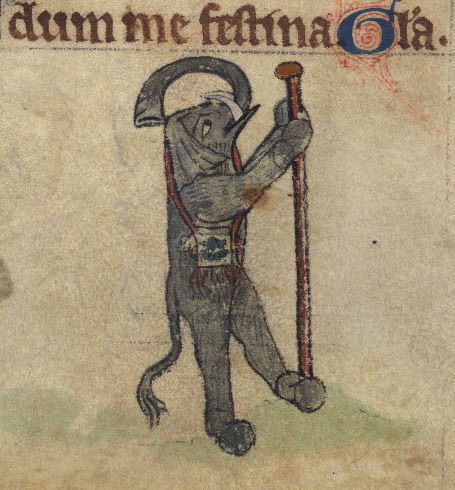 dum me festina Gl'a.